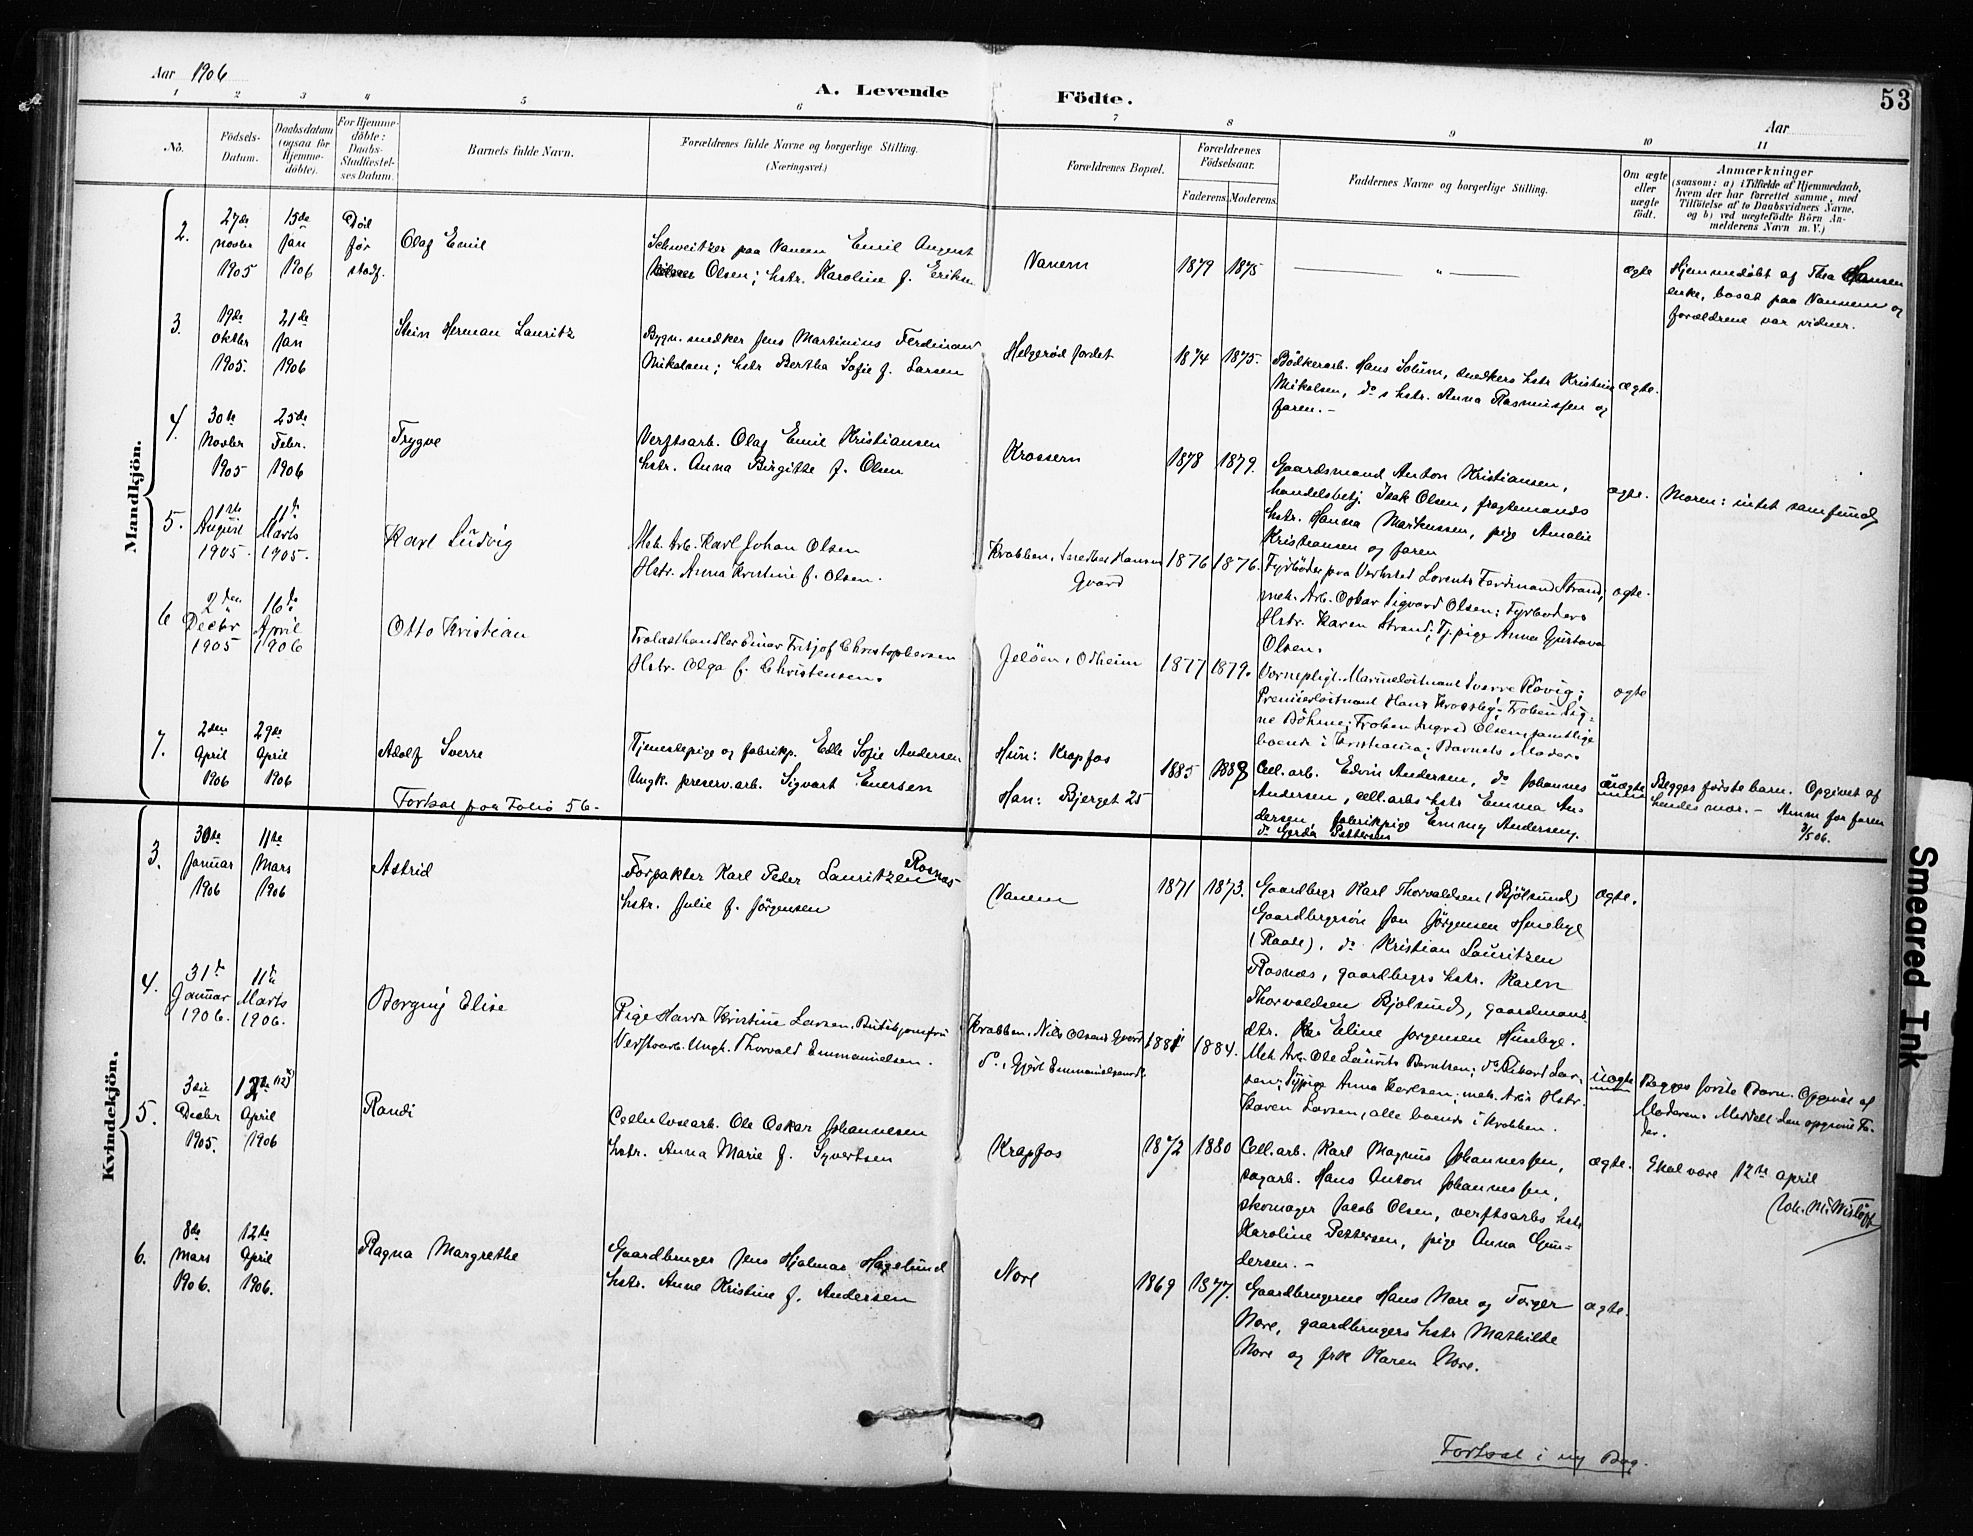 Aar 1906
A. Levende Födte.
53
Aar
1 2 3 4 5 6 7 8 9 10 11
No.
Födsels-
Datum.
Daabsdatum
(ogsaa for
Hjemme-
döbte).
For Hjemme-
döbte:
Daabs-
Stadfæstel-
ses Datum.
Barnets fulde Navn.
Forældrenes fulde Navne og borgerlige Stilling.
(Næringsvei.)
Forældrenes Bopæl.
Forældrenes
Födselsaar.
Faderens. Moderens.
Faddernes Navne og borgerlige Stilling.
Om ægte
eller
uægte
födt.
Anmærkninger
(saasom: a) i Tilfælde af Hjemmedaab,
hvem der har forrettet samme, med
Tilföielse af to Daabsvidners Navne,
og b) ved uægtefödte Börn An-
melderens Navn m. V.)
Mandkjön.
2.
27de
Novbr
1905
15de
Jan
1906
Död
før
stadf.
Olaf Emil
Schweitzer paa Vanem Emil August
Olsen; hstr. Karoline f. Eriksen
Vanem
1879 1875
ægte
Hjemmedøbt af Thea Hansen
enke, bosat paa Vannem og
forældrene var vidner.
3.
19de
Oktbr
1905.
21de
Jan
1906
Stein Herman Lauritz
Bygn.snedker Jens Martinius Ferdinand
Nikolsen; hstr Bertha Sofie f. Larsen
Helgerød jordet
1874 1875.
Bødkerarb. Hans Solum, snedkers hstr Kristine
Nikolsen, do s hstr. Anna Rasmussen og
faren. -
ægte.
4.
30te
Novbr
1905
25de
Febr.
1906
Trygve
Verftsarb. Olaf Emil Kristiansen
hstr. Anna Birgitte f. Olsen
Krossern
1878 1879.
Gaardsmand Anton Kristiansen,
handelsbetj. Isak Olsen, fragtemands
hstr. Hanna Markussen, pige Amalie
Kristiansen og faren
ægte.
Moren: intet samfund
5.
1ste
August
1905.
11te
Marts
1905.
Karl Ludvig
Mek. Arb. Karl Johan Olsen
Hstr. Anna Kristine f. Olsen.
Krabben, Snedker Hansen
Gaard
1876 1876.
Fyrbøder paa Verksted Lorents Ferdinand Strand,
mek. Arb. Oskar Sigvard Olsen; Fyrbøders
Hstr. Karen Strand; Tj.pige Anna Gustava
Olsen.
ægte.
6
2den
Decbr
1905
16de
April
1906
Otto Kristian
Trælasthandler Einar Fritjof Christophersen
Hstr. Olga f. Christensen.
Jeløen, Odheim
1877 1879.
Vernepligt. Marineløitnant Sverre Røvig;
Premierløitnant Hans Krossby; Frøken Sig-
ne Bøhme; Frøken Ingrid Olsen, samtlige
boende i Kristiania; Barnets Moder.
ægte
7.
2den
April
1906
29de
April
1906
Adolf Sverre
Tjenestepige og fabrikp. Edle Sofie Andersen
Ungk. preserv.arb. Sigvart Enersen
Hun: Krapfos
Han: Bjerget 25
1885 1888
Cell.arb. Edvin Andersen, do Johannes
Andersen, cell.arbs hstr Emma An-
dersen, fabrikpige Emmy Andersen.
do Gerda Pettersen
uægte
Begges første barn. Opgivet af
hendes mor. - Anm for faren
3/5 06.
Fortsat paa Folio 56.
Kvindekjön.
3.
30te
Januar
1906
11te
Mars
1906
Astrid
Forpakter Karl Peder Lauritzen Rosnæs
hstr. Julie f. Jørgensen
Vanem
1871 1873.
Gaardbrgr Karl Thorvaldsen (Bjølsund)
Gaardbrgersøn Jon Jørgensen Huseby
(Raade), do Kristian Lauritzen
Rosnæs, gaardbrgrs hstr. Karen
Thorvaldsen Bjølsund, gaardmans-
dtr. Eline Jørgensen Huseby.
ægte.
4.
31te
Januar
1906.
11te
Marts
1906.
Borgny Elise
Pige Harda Kristine Larsen, Butikjomfru
Verftsarb. Ungk. Thorvald Emmanuelsen.
Krabben, Nils Olsens Gaard
1881 1884.
Mek. Arb. Ole Laurits Berntsen; do Rikard Lar-
sen; Sypige Anna Karlsen; mek. Arbs Hstr.
Karen Larsen, alle boende i Krabben.
uægte
Begges første Barn. Opgivet af
Moderen. Meddelt den opgivne Fa-
der.
5.
3die
Decbr
1905.
12te (12te)
April
1906
Randi
Cellulosearb. Ole Oskar Johannesen
hstr. Anna Marie f. Syvertsen
Krapfos
1872 1880
Cell.arb. Karl Magnus Johannessen,
sagarb. Hans Anton Johannessen,
skomager Jacob Olsen, verftsarbs hstr
Karoline Pettersen, pige Anna Gun-
dersen. -
ægte.
Skal være 12te april
Joh. M. Wisløff
6.
8de
Mars
1906.
12te
April
1906.
Ragna Margrethe
Gaardbruger Jens Hjalmar Hagelund
hstr. Anne Kristine f. Andersen
Nore
1869 1877.
Gaardbrugerne Hans Nore og Torger
Nore, gaardbrugers hstr Mathilde
Nore og frk Karen Nore.
ægte.
Fortsat i ny Bog.
Smeared Ink